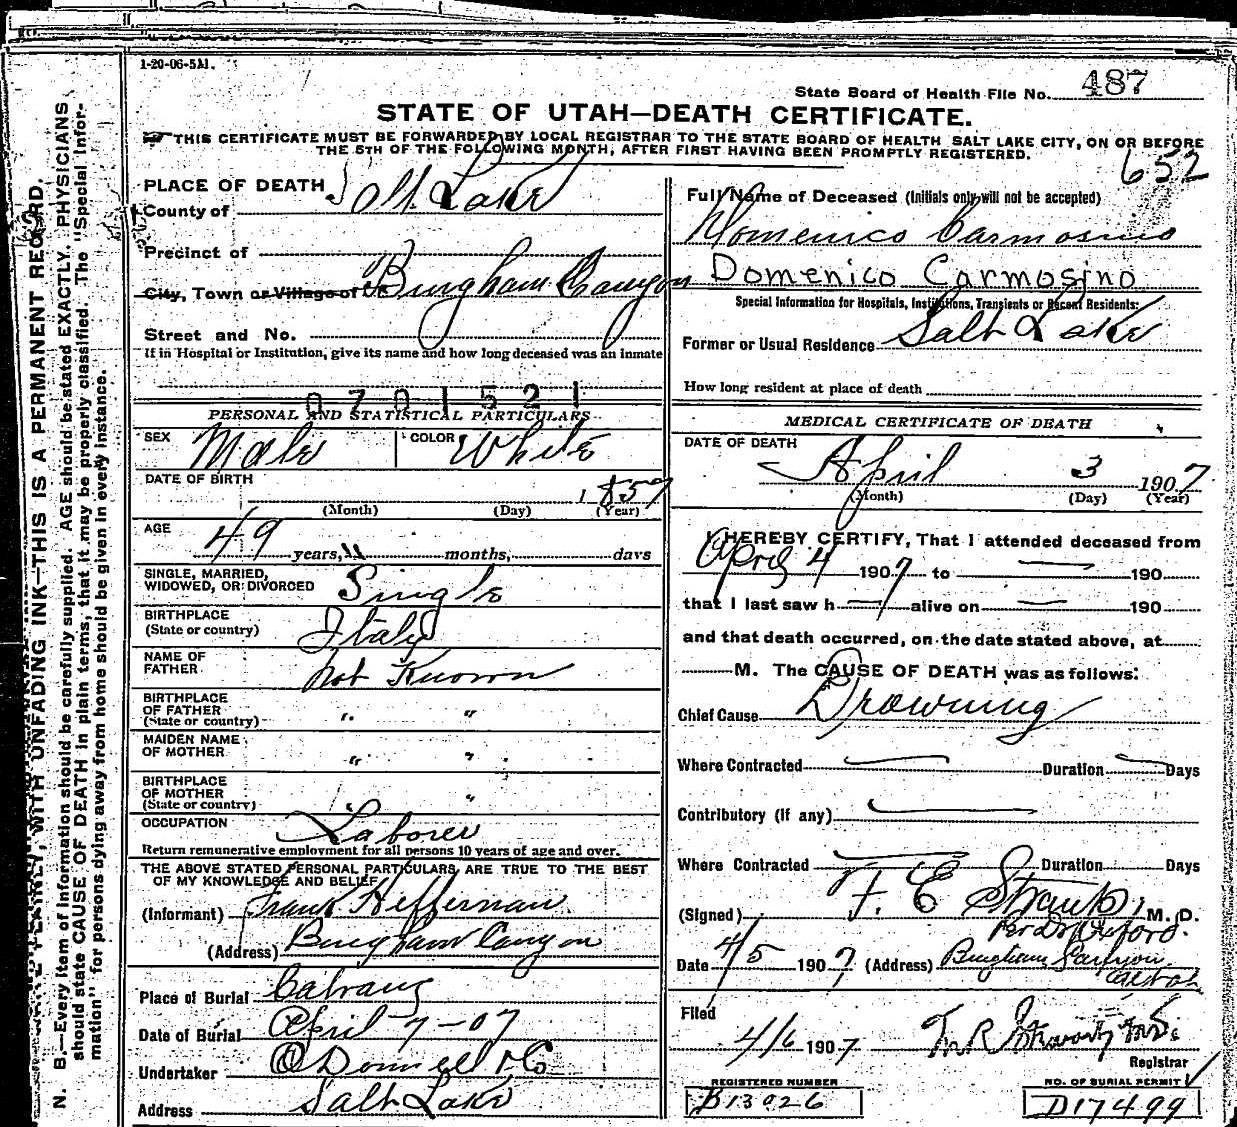 1-20-06-5M.
State Board of Health File No. 487
STATE OF UTAH—DEATH CERTIFICATE.
THIS CERTIFICATE MUST BE FORWARDED BY LOCAL REGISTRAR TO THE STATE BOARD OF HEALTH SALT LAKE CITY, ON OR BEFORE
THE 5TH OF THE FOLLOWING MONTH, AFTER FIRST HAVING BEEN PROMPTLY REGISTERED.
652
PLACE OF DEATH
County of Salt Lake
Precinct of
City, Town or Village of Bingham Canyon
Street and No.
If in Hospital or Institution, give its name and how long deceased was an inmate
0 7 0 1 5 2 1
PERSONAL AND STATISTICAL PARTICULARS
SEX Male COLOR White
DATE OF BIRTH 1857
(Month) (Day) (Year)
AGE 49 years, months, days
SINGLE, MARRIED,
WIDOWED, OR DIVORCED Single
BIRTHPLACE
(State or country) Italy
NAME OF
FATHER Not Known
BIRTHPLACE
OF FATHER
(State or country) " "
MAIDEN NAME
OF MOTHER " "
BIRTHPLACE
OF MOTHER
(State or country) "
OCCUPATION Laborer
Return remunerative employment for all persons 10 years of age and over.
THE ABOVE STATED PERSONAL PARTICULARS ARE TRUE TO THE BEST
OF MY KNOWLEDGE AND BELIEF
(Informant) Frank Heffernan
(Address) Bingham Canyon
Place of Burial Calvary
Date of Burial April 7-07
Undertaker O Donnell & Co
Address Salt Lake
Full Name of Deceased (Initials only will not be accepted)
Domenico Carmosino
Domenico Carmosino
Special Information for Hospitals, Institutions, Transients or Recent Residents:
Former or Usual Residence Salt Lake
How long resident at place of death
MEDICAL CERTIFICATE OF DEATH
DATE OF DEATH
April 3 1907
(Month) (Day) (Year)
I HEREBY CERTIFY, That I attended deceased from
April 4 1907 to — 190
that I last saw h — alive on — 190
and that death occurred, on the date stated above, at
M. The CAUSE OF DEATH was as follows:
Chief Cause Drowning
Where Contracted — Duration — Days
Contributory (If any) —
Where Contracted — Duration Days
(Signed) F. E. Straub, M. D.
Date 4/5 1907 (Address) Bingham Canyon
Filed
4/6 1907
Registrar
REGISTERED NUMBER
B13026
NO. OF BURIAL PERMIT
D17499
N. B.—Every item of information should be carefully supplied. AGE should be stated EXACTLY. PHYSICIANS
should state CAUSE OF DEATH in plain terms, that it may be properly classified. The "Special Infor-
mation" for persons dying away from home should be given in every instance.
WITH UNFADING INK—THIS IS A PERMANENT RECORD.